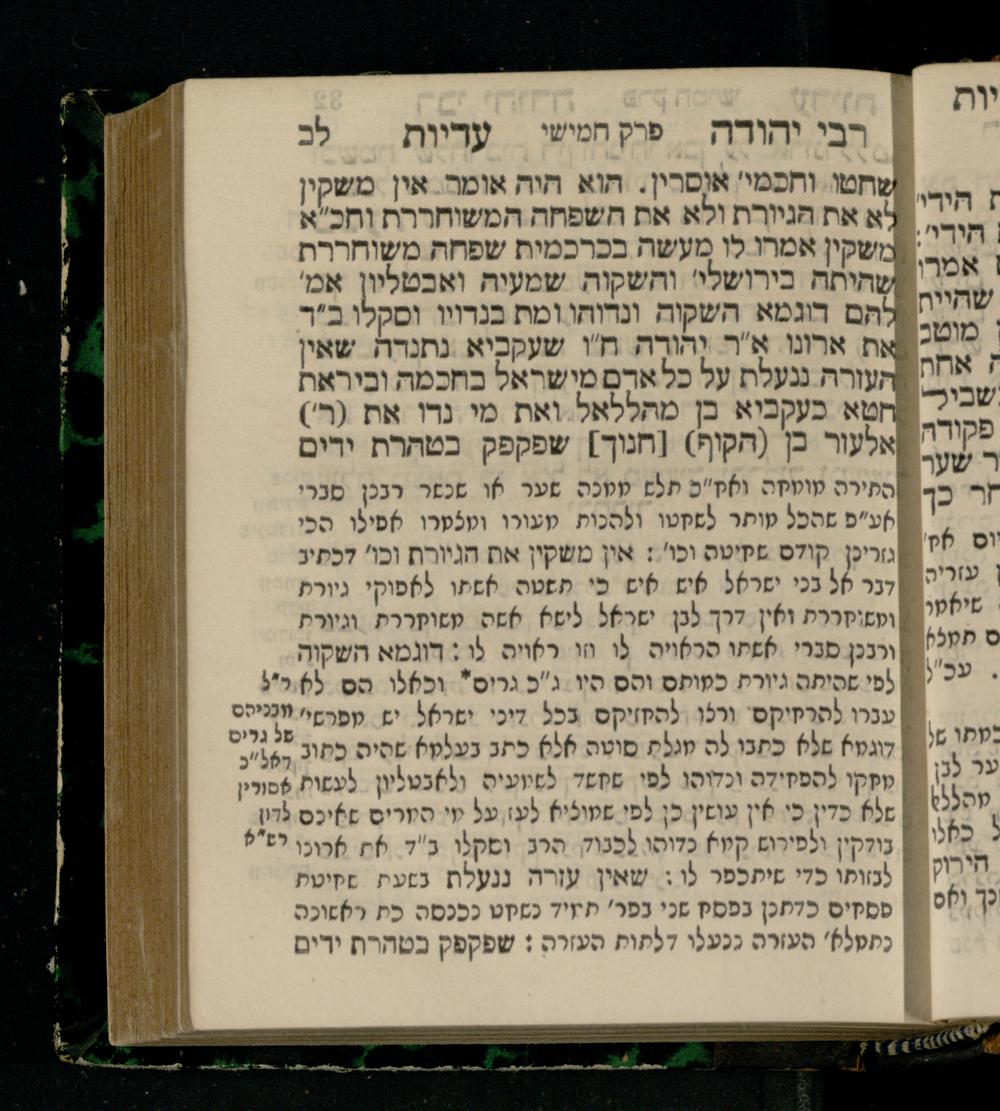 רבי יהודה פרק חמישי עדיות לב
שחטו וחכמי׳ אוסרין. הוא היה אומר אין משקין
לא את הגיורת ולא את השפחה המשוחררת וחכ״א
משקין אמרו לו מעשה בכרכמית שפחה משוחררת
שהיתה בירושלי׳ והשקוה שמעיה ואבטליון אמ׳
להם דוגמא השקוה ונדוהו ומת בנדויו וסקלו ב״ד
את ארונו א״ר יהודה ח״ו שעקביא נתנדה שאין
העזרה ננעלת על כל אדם מישראל בחכמה וביראת
חטא כעקביא בן מהללאל ואת מי נדו את (ר׳)
אלעזר בן (הקוף) [חנוך] שפקפק בטהרת ידים
התירה מומחה ואח״כ תלש ממנה שער או שנשר רבנן סברי
אע״פ שהכל מותר לשחטו ולהנות מעורו ומצמרו אפילו הכי
גזרינן קודם שחיטה וכו׳ : אין משקין את הגיורת וכו׳ דכתיב
דבר אל בני ישראל איש איש כי תשטה אשתו לאפוקי גיורת
ומשוחררת ואין דרך לבן ישראל לישא אשה משוחררת וגיורת
ורבנן סברי אשתו הראויה לו וזו ראויה לו : דוגמא השקוה
לפי שהיתה גיורת כמותם והם היו ג״כ גרים* וכאלו הם לא
עברו להרחיקם ורצו להחזיקם בכל דיני ישראל יש מפרשי׳
דוגמא שלא כתבו לה מגלת סוטה אלא כתב בעלמא שהיה כתוב
מחקו להפחידה ונדוהו לפי שחשד לשמעיה ולאבטליון לעשות
שלא כדין כי אין עושין כן לפי שמוציא לעז על מי המרים שאינם
בודקין ולפירוש קמא נדוהו לכבוד הרב וסקלו ב״ד את ארונו
לבזותו כדי שיתכפר לו : שאין עזרה ננעלת בשעת שחיטת
פסחים כדתנן בפסח שני בפר׳ תמיד נשחט נכנסה כת ראשונה
נתמלא׳ העזרה ננעלו דלתות העזרה : שפקפק בטהרת ידים
ר״ל
מבניהם
של גרים
דאל״כ
אסורין
לדון
רש״א